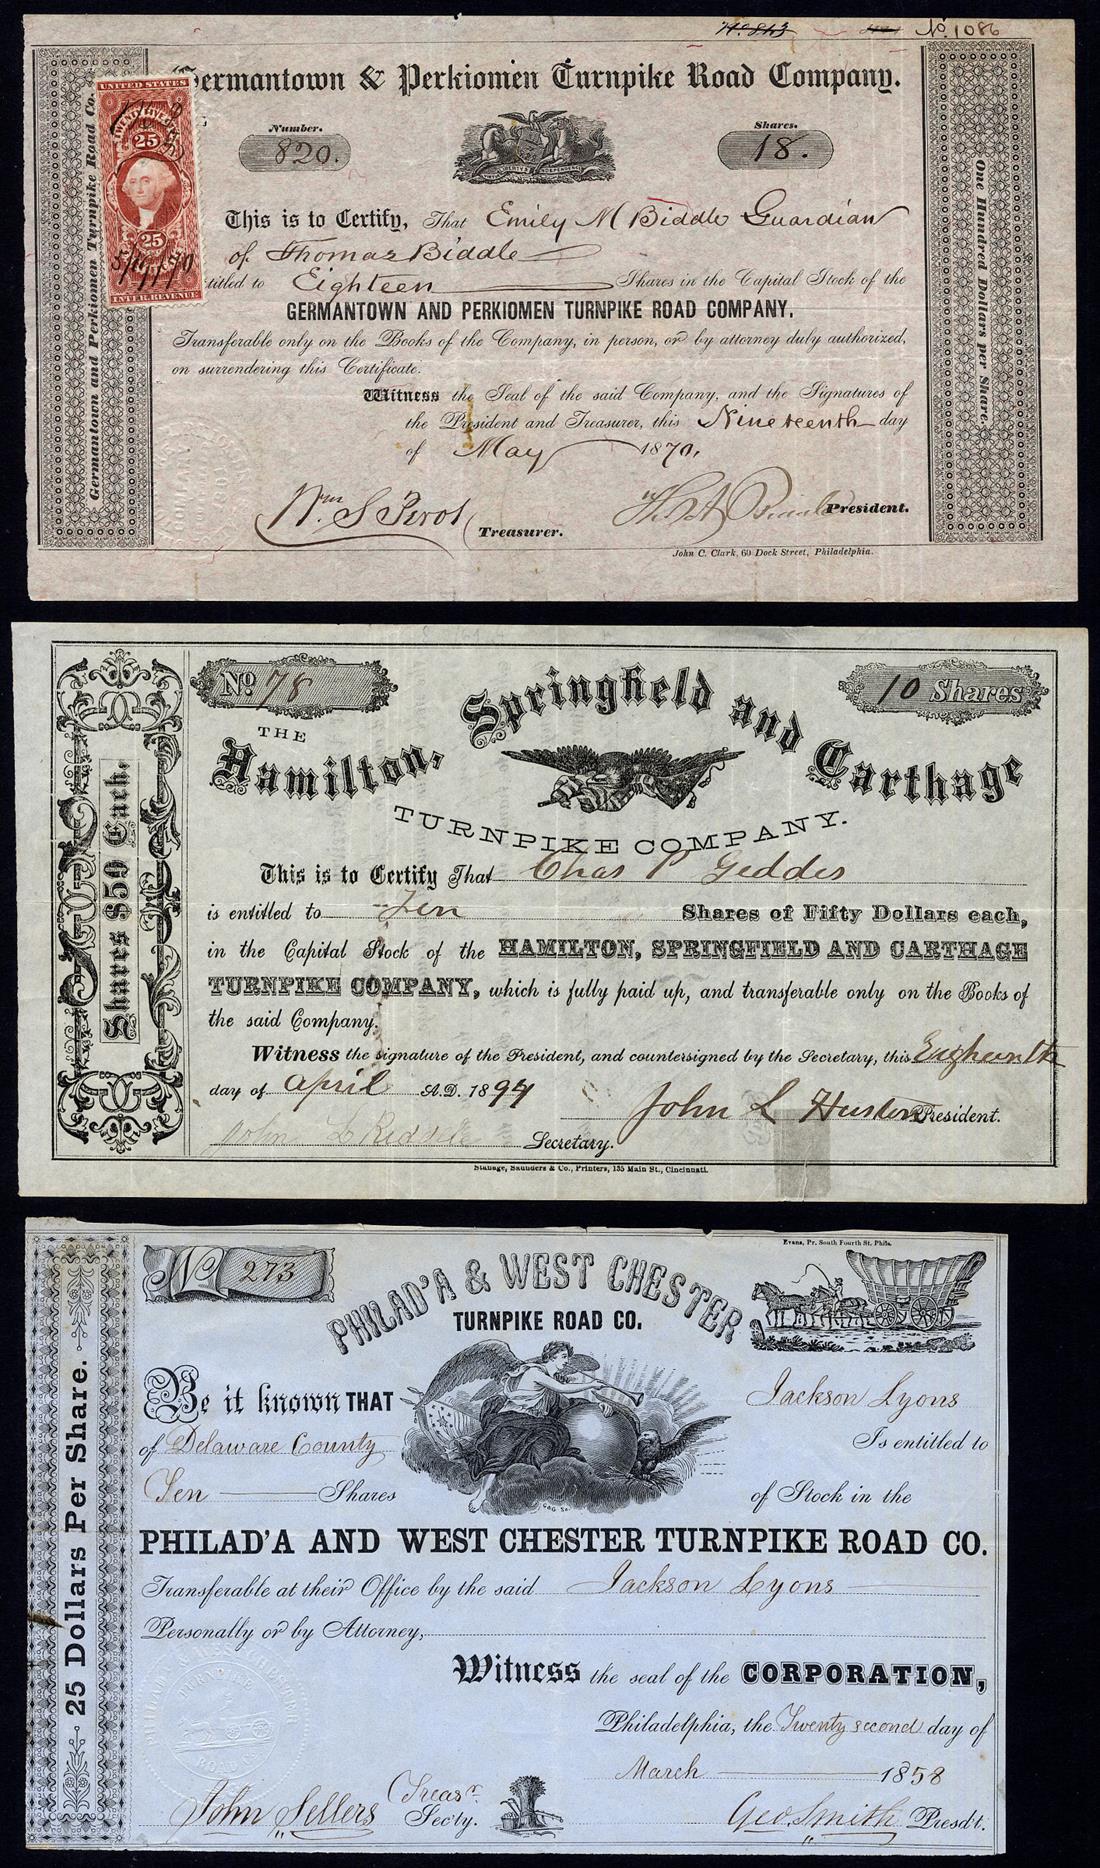 No. 843 No. 1086
Germantown & Perkiomen Turnpike Road Company.
Number. Shares.
820. 18.
UNITED STATES
TWENTY FIVE
25
25
INTER. REVENUE
Germantown and Perkiomen Turnpike Road Co.
One Hundred Dollars per Share.
This is to Certify, That Emily M Biddle Guardian
of Thomas Biddle
titled to Eighteen Shares in the Capital Stock of the
GERMANTOWN AND PERKIOMEN TURNPIKE ROAD COMPANY.
Transferable only on the Books of the Company, in person, or by attorney duly authorized,
on surrendering this Certificate.
Witness the Seal of the said Company, and the Signatures of
the President and Treasurer, this Nineteenth day
of May 1870.
Wm S Perot Treasurer. President.
John C. Clark, 60 Dock Street, Philadelphia.
No. 78 10 Shares
THE
Hamilton, Springfield and Carthage
TURNPIKE COMPANY.
Shares $50 Each.
This is to Certify That Chas P Geddes
is entitled to Ten Shares of Fifty Dollars each,
in the Capital Stock of the HAMILTON, SPRINGFIELD AND CARTHAGE
TURNPIKE COMPANY, which is fully paid up, and transferable only on the Books of
the said Company.
Witness the signature of the President, and countersigned by the Secretary, this
day of April A.D. 1894
John L Huston President.
John C Riddle Secretary.
Stanage, Saunders & Co., Printers, 135 Main St., Cincinnati.
Evans, Pr. South Fourth St. Phila.
No 273
PHILAD'A & WEST CHESTER
TURNPIKE ROAD CO.
25 Dollars Per Share.
Be it known THAT Jackson Lyons
of Delaware County Is entitled to
Ten Shares of Stock in the
PHILAD'A AND WEST CHESTER TURNPIKE ROAD CO.
Transferable at their Office by the said Jackson Lyons
Personally or by Attorney,
Witness the seal of the CORPORATION,
Philadelphia, the Twenty second day of
March 1858
John Sellers Treasr Sec'ty. Geo. Smith Presd't.